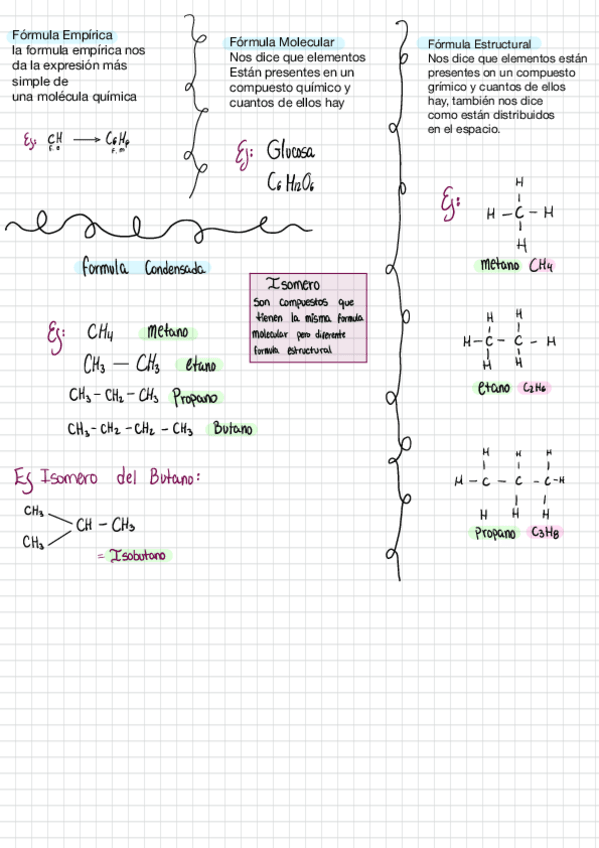 Fórmula Empírica
la formula empírica nos
da la expresión más
simple de
una molécula química
Ej: CH → C6H6
F.e F.m
Fórmula Molecular
Nos dice que elementos
Están presentes en un
compuesto químico y
cuantos de ellos hay
Ej: Glucosa
C6H12O6
Fórmula Estructural
Nos dice que elementos están
presentes on un compuesto
grímico y cuantos de ellos
hay, también nos dice
como están distribuidos
en el espacio.
Ej:
H
H – C – H
H
metano CH4
H H
H – C – C – H
H H
etano C2H6
H H H
H – C – C – C – H
H H H
Propano C3H8
formula Condensada
Ej: CH4 metano
CH3 — CH3 etano
CH3 – CH2 – CH3 Propano
CH3 – CH2 – CH2 – CH3 Butano
Isomero
Son compuestos que
tienen la misma formula
molecular pero diferente
formula estructural
Ej Isomero del Butano:
CH3
CH – CH3
CH3
= Isobutano